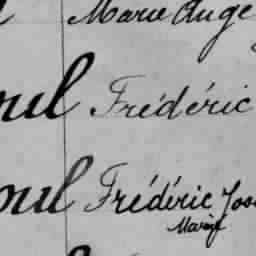 Marie Ange
oul Frédéric
oul Frédéric Jos
Marie